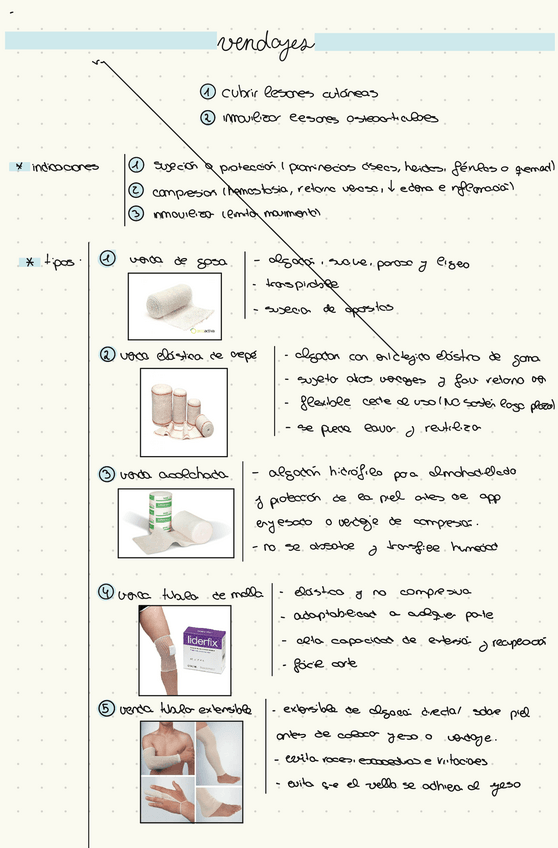 vendajes
① cubrir lesiones cutáneas
② inmovilizar lesiones osteoarticulares
* indicaciones
① sujeción o protección (prominencias óseas, heridas, férulas o quemad)
② compresión (hemostasia, retorno venoso, ↓ edema e inflamación)
③ inmovilizar (limita movimiento)
* tipos
① venda de gasa
- algodón, suave, poroso y ligero
- transpirable
- sujeción de apósitos
② venda elástica de crepé
- algodón con elástico de goma
- sujeta otros vendajes y fav retorno ven
- flexible cede al uso (NO sostén largo plazo)
- se puede lavar y reutilizar
③ venda acolchada
- algodón hidrófilo para almohadillado
y protección de la piel antes de app
enyesado o vendaje de compresión.
- no se absorbe y transfiere humedad
④ venda tubular de malla
- elástica y no compresiva
- adaptabilidad a cualquier parte
- alta capacidad de extensión y recuperación
- fácil corte
liderfix
⑤ venda tubular extensible
- extensible de algodón directa/ sobre piel
antes de colocar yeso o vendaje.
- evita roces, e irritaciones
- evita que el vello se adhiera al yeso